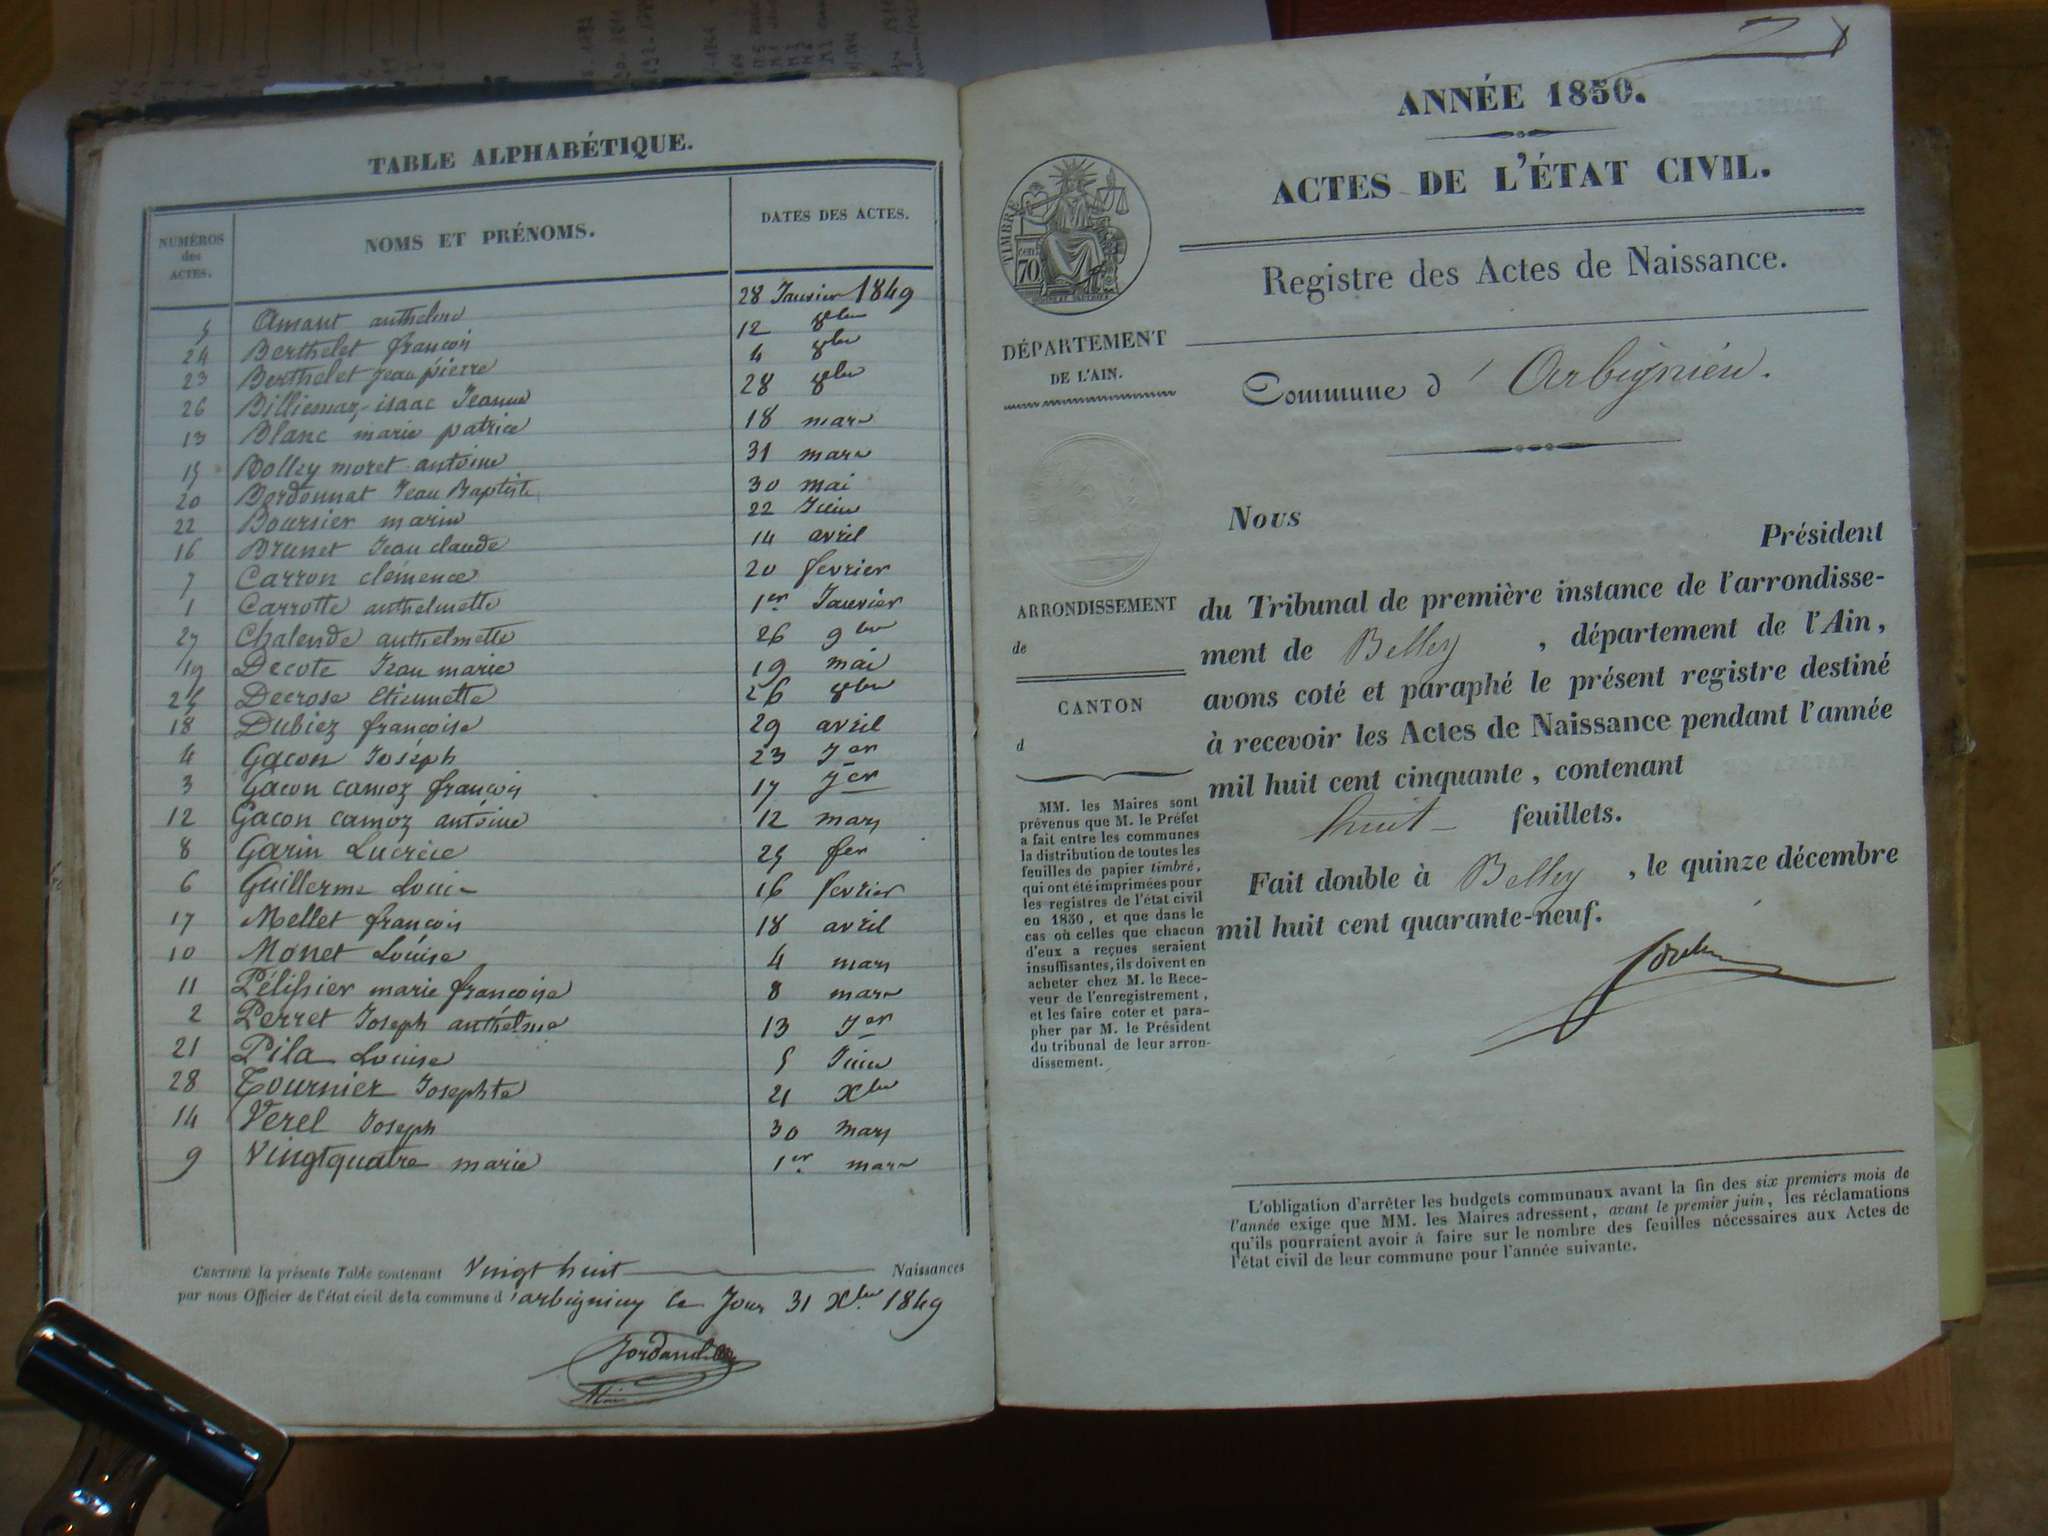 TABLE ALPHABÉTIQUE.
NUMÉROS des ACTES. NOMS ET PRÉNOMS. DATES DES ACTES.
5 Amant anthelme 28 Janvier 1849
24 Berthelet françois 12 8bre
23 Berthelet jean pierre 4 8bre
26 Billiemaz-isaac Jeanne 28 8bre
13 Blanc marie patrice 18 mars
15 Bolley moret antoine 31 mars
20 Bordonnat Jean Baptiste 30 mai
22 Boursier marin 22 Juin
16 Brunet Jean claude 14 avril
7 Carron clémence 20 fevrier
1 Carrotte anthelmette 1er Janvier
27 Chalende anthelmette 26 9bre
19 Decote Jean marie 19 mai
25 Decrose Etiennette 26 8bre
18 Dubiez françoise 29 avril
4 Gacon Joséph 23 Jer
3 Gacon camoz françois 17 Jer
12 Gacon camoz antoine 12 mars
8 Garin Lucrèce 25 fer
6 Guillerme Louis 16 fevrier
17 Mellet françois 18 avril
10 Monet Louise 4 mars
11 Pélissier marie françoise 8 mars
2 Perret Joseph anthélme 13 Jer
21 Pila Louise 5 Juin
28 Tournier Josephte 21 Xbre
14 Verel Joseph 30 mars
9 Vingtquatre marie 1er mars
CERTIFIÉ la présente Table contenant Vingt huit Naissances
par nous Officier de l'état civil de la commune d'arbignieu ce Jour 31 Xbre 1849
Maire
ANNÉE 1850.
ACTES DE L'ÉTAT CIVIL.
Registre des Actes de Naissance.
TIMBRE
cen. 70
DÉPARTEMENT
DE L'AIN.
Commune d'Arbignieu.
ARRONDISSEMENT
de
CANTON
d
MM. les Maires sont
prévenus que M. le Préfet
a fait entre les communes
la distribution de toutes les
feuilles de papier timbré,
qui ont été imprimées pour
les registres de l'état civil
en 1850, et que dans le
cas où celles que chacun
d'eux a reçues seraient
insuffisantes, ils doivent en
acheter chez M. le Rece-
veur de l'enregistrement,
et les faire coter et para-
pher par M. le Président
du tribunal de leur arron-
dissement.
Nous Président
du Tribunal de première instance de l'arrondisse-
ment de Belley, département de l'Ain,
avons coté et paraphé le présent registre destiné
à recevoir les Actes de Naissance pendant l'année
mil huit cent cinquante, contenant
huit feuillets.
Fait double à Belley, le quinze décembre
mil huit cent quarante-neuf.
L'obligation d'arrêter les budgets communaux avant la fin des six premiers mois de
l'année exige que MM. les Maires adressent, avant le premier juin, les réclamations
qu'ils pourraient avoir à faire sur le nombre des feuilles nécessaires aux Actes de
l'état civil de leur commune pour l'année suivante.